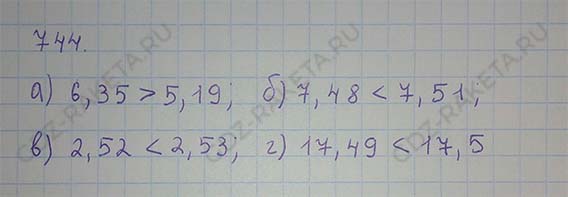 744.
а) 6,35 > 5,19; б) 7,48 < 7,51,
в) 2,52 < 2,53; г) 17,49 < 17,5
GDZ-RAKETA.RU